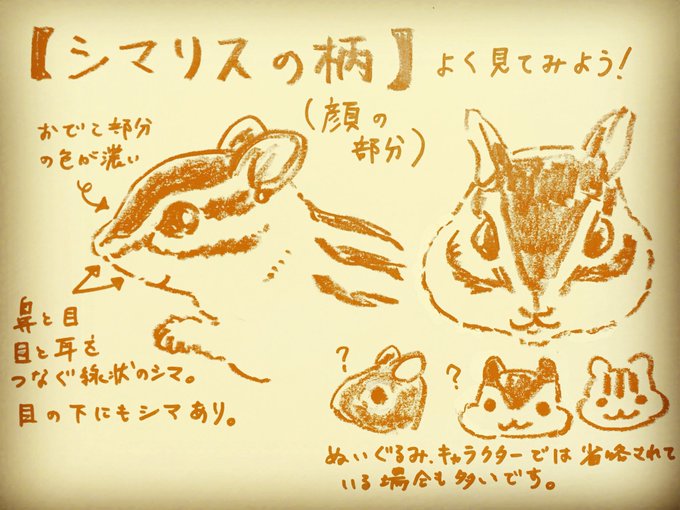 【シマリスの柄】よく見てみよう!
(顔の
部分)
おでこ部分
の色が濃い
鼻と目
目と耳を
つなぐ線状のシマ。
目の下にもシマあり。
?
?
ぬいぐるみ、キャラクターでは省略されて
いる場合も多いです。